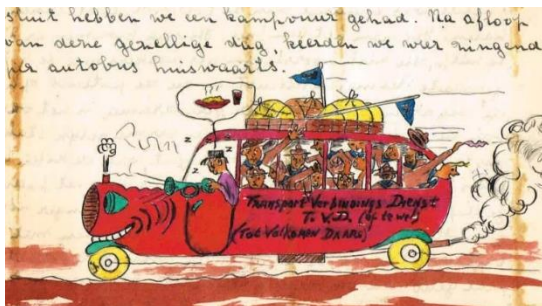 sluit hebben we een kampvuur gehad. Na afloop
van deze gezellige dag, keerden we weer zingend
per autobus huiswaarts.
z
z
z
Transport Verbindings Dienst
T.V.D. (of te wel
(Tot Volkomen Dienst)